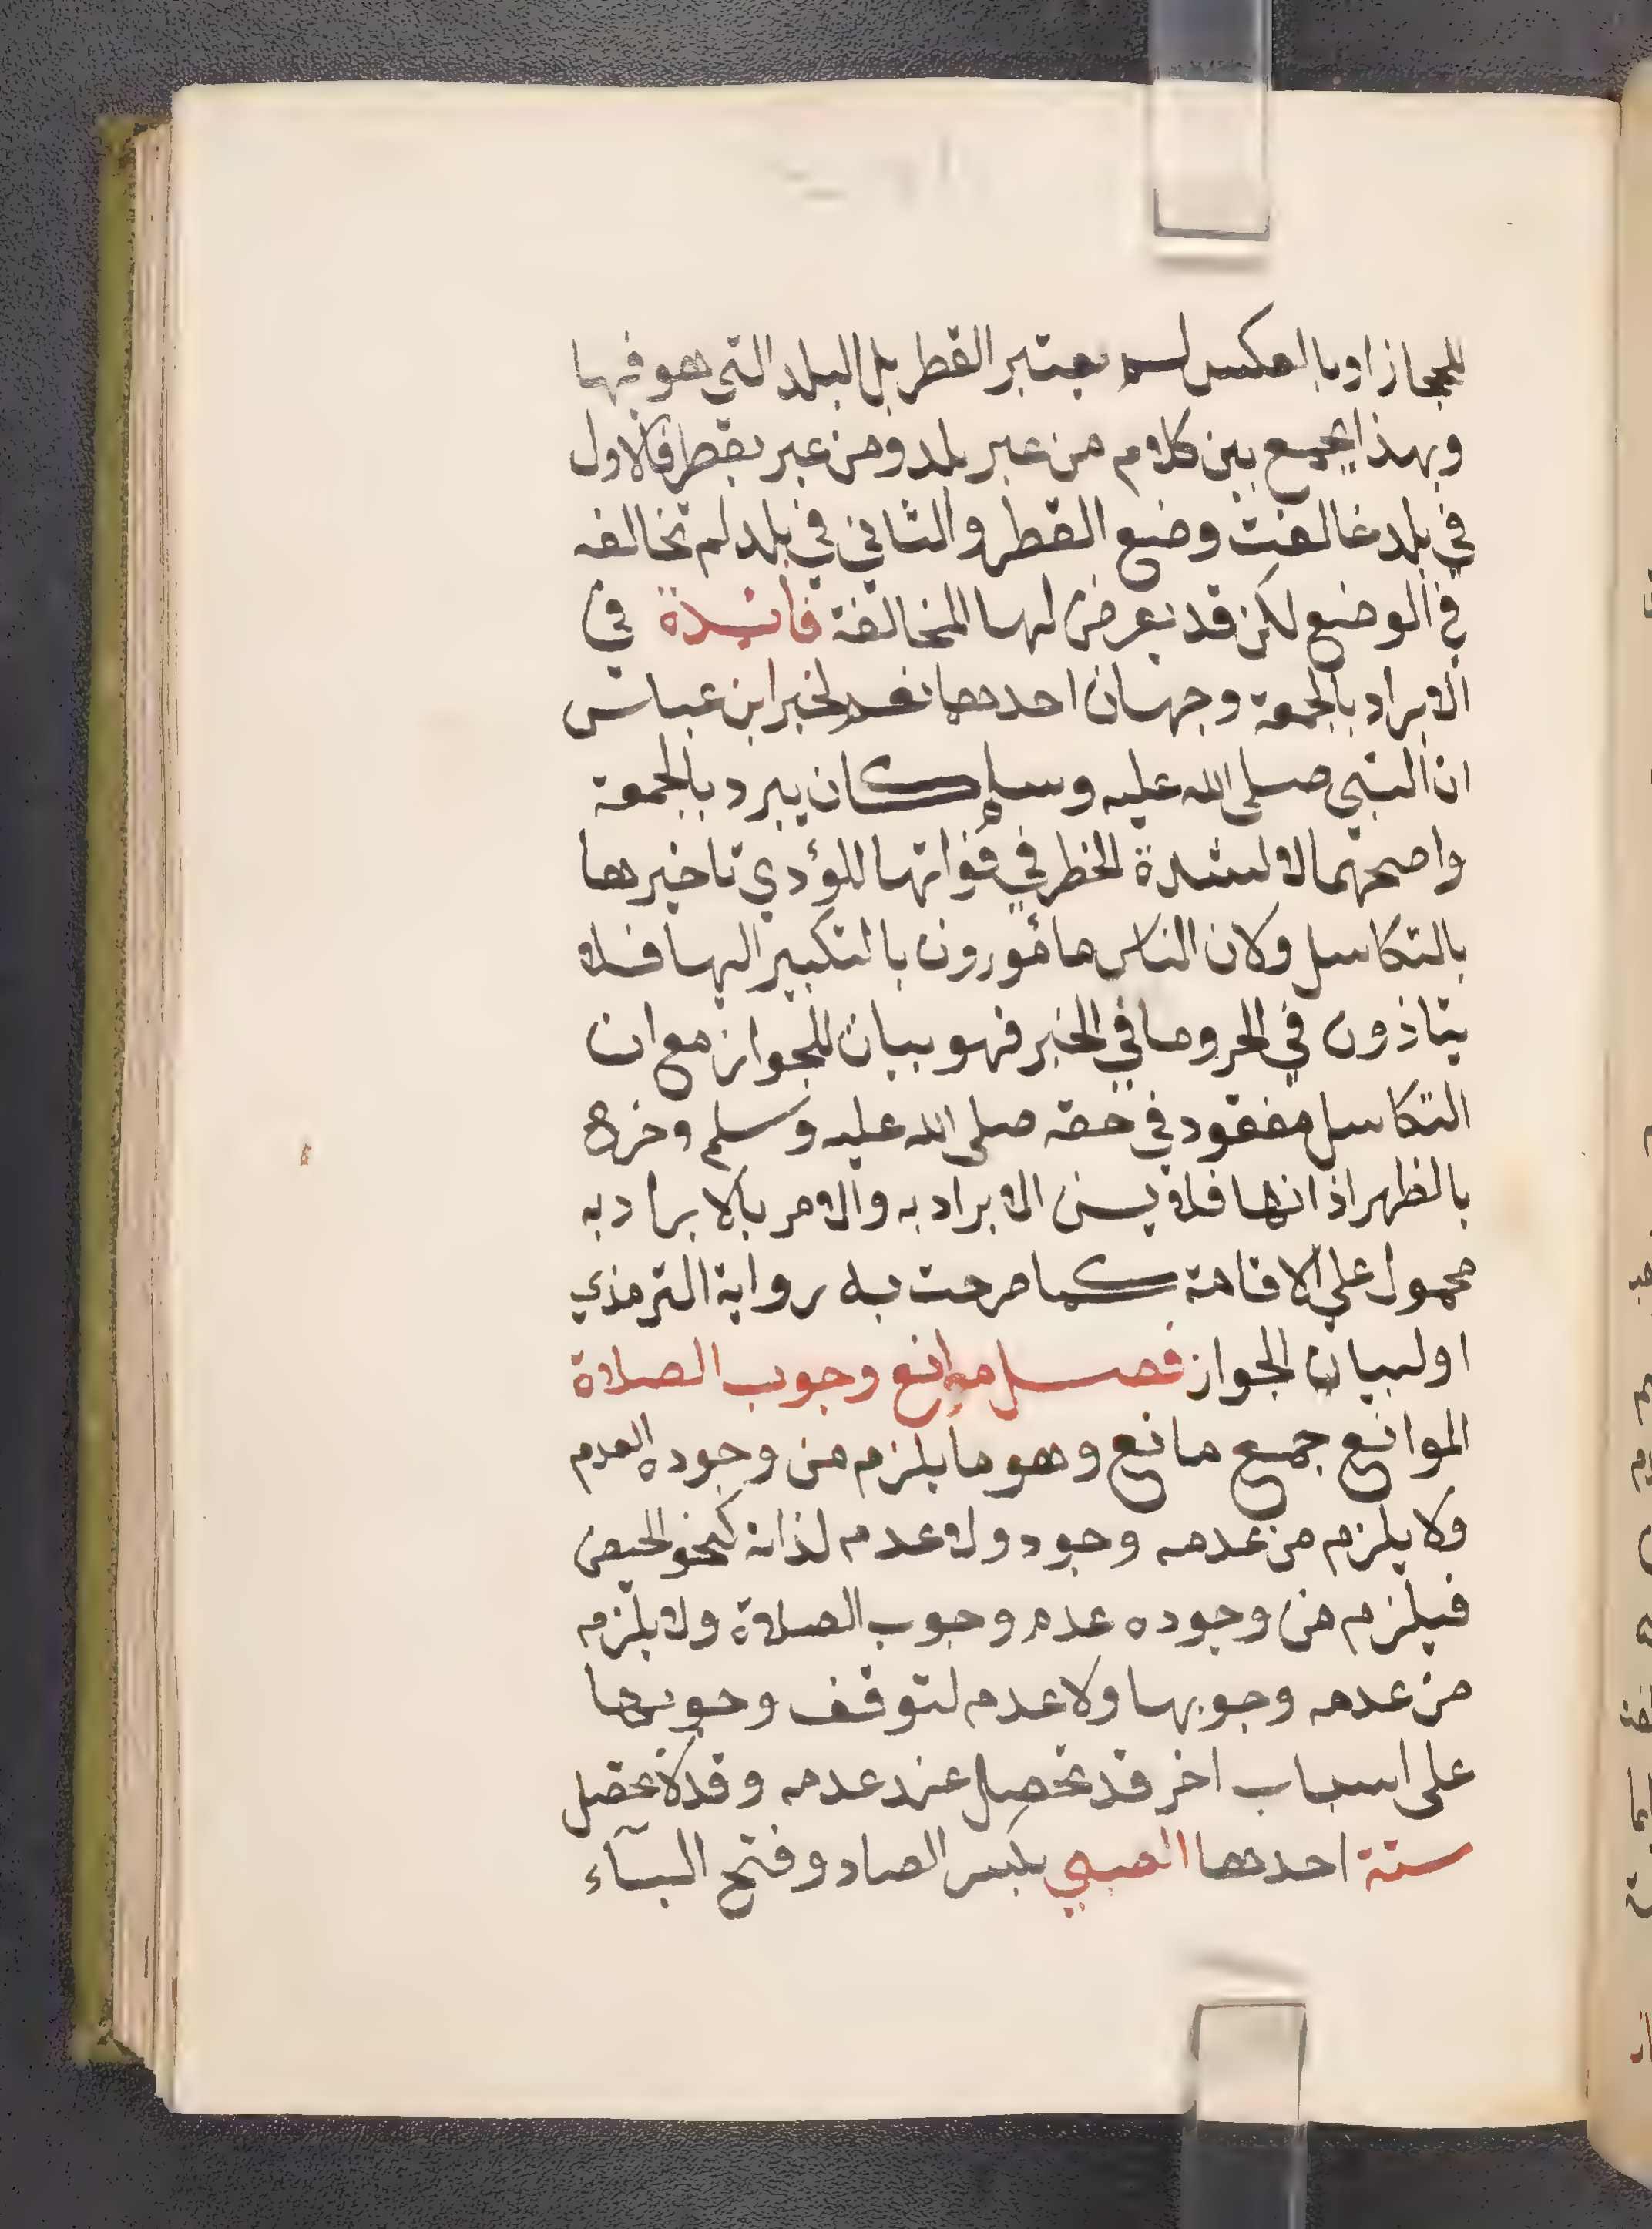 للحجاز او بالعكس لم يعتبر القطر بل البلد التي هو فيها
وبهذا يجمع بين كلام من عبر ببلد ومن عبر بقطر فالاول
في بلد خالفت وضع القطر والثاني في بلد لم تخالفه
في الوضع لكن قد يعرض لها المخالفة فائدة في
الابراد بالجمعة وجهان احدهما نعم لخبر ابن عباس
ان النبي صلى الله عليه وسلم كان يبرد بالجمعة
واصحهما لا لشدة الخطر في فواتها المؤدي تاخيرها
بالتكاسل ولان الناس مأمورون بالتكبير اليها فلا
يتاذون في الحر وما في الخبر فهو بيان للجواز مع ان
التكاسل مفقود في حقه صلى الله عليه وسلم وخرج
بالظهر اذانها فلا يسن الابراد به والامر بالابراد به
محمول على الاقامة كما صرحت به رواية الترمذي
او لبيان الجواز فصل موانع وجوب الصلاة
الموانع جمع مانع وهو ما يلزم من وجوده العدم
ولا يلزم من عدمه وجود ولا عدم لذاته كنحو الحيض
فيلزم من وجوده عدم وجوب الصلاة ولا يلزم
من عدمه وجوبها ولا عدم لتوقف وجوبها
على اسباب اخر قد تحصل عند عدمه وقد لا تحصل
ستة احدها الصبي بكسر الصاد وفتح البآء